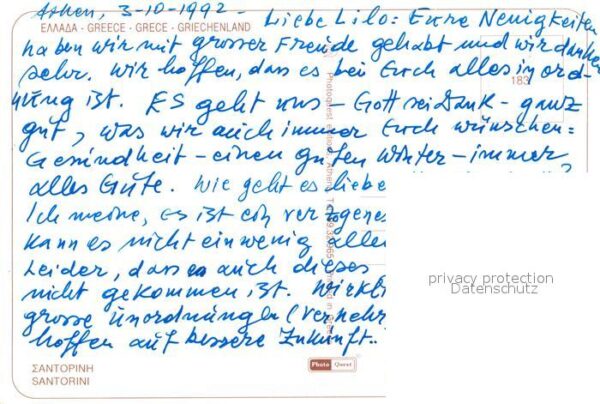 Athen, 3-10-1992 - Liebe Lilo: Eure Neuigkeiten
ΕΛΛΑΔΑ · GREECE · GRECE · GRIECHENLAND
haben wir mit grosser Freude gehabt und wir danken
sehr. Wir hoffen, dass es bei Euch alles in ord-
nung ist. ES geht uns - Gott sei Dank - ganz
183
gut, was wir auch immer Euch wünschen:
Gesundheit - einen guten Winter - immer
alles Gute. Wie geht es liebe
Ich meine, es ist ein verzogenes
kann es nicht ein wenig alle
Leider, dass auch dieses
nicht gekommen ist. Wirkli
grosse Unordnungen (Verkehr
hoffen auf bessere Zukunft..
Photoquest Athens
privacy protection
Datenschutz
ΣΑΝΤΟΡΙΝΗ
SANTORINI
Photo Quest